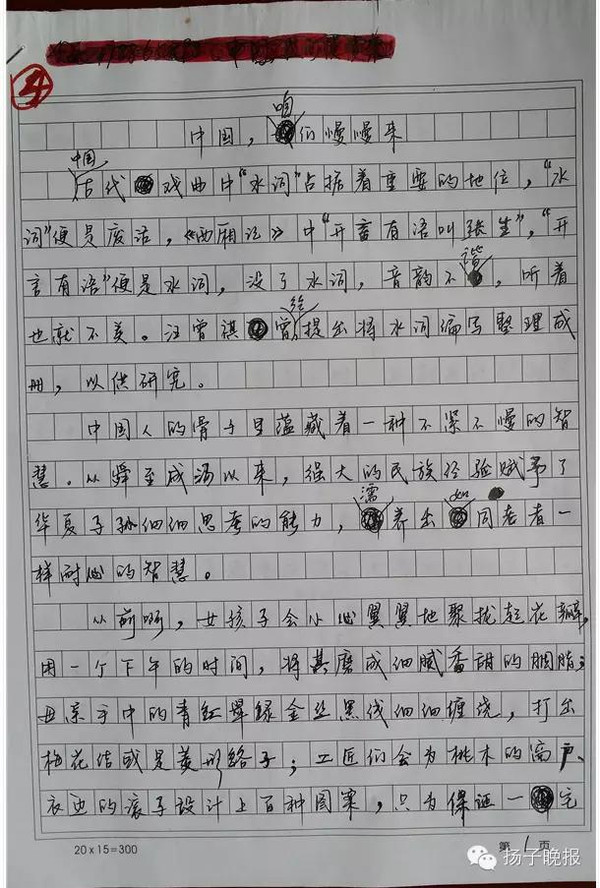 4
中国，咱们慢慢来
中国古代戏曲中“水词”占据着重要的地位，“水
词”便是废话，《西厢记》中“开言有语叫张生”，“开
言有语”便是水词，没了水词，音韵不谐，听着
也就不美。汪曾祺曾经提出将水词编写整理成
册，以供研究。
中国人的骨子里蕴藏着一种不紧不慢的智
慧。从舜至成汤以来，强大的民族经验赋予了
华夏子孙细细思考的能力，濡养出如同老者一
样耐心的智慧。
从前啊，女孩子会小心翼翼地聚拢起花瓣，
用一个下午的时间，将其磨成细腻香甜的胭脂；
母亲手中的青红翠绿金丝黑线细细缠绕，打出
梅花结或是菱形络子；工匠们会为桃木的窗户、
衣边的滚子设计上百种图案，只为保证一宅
20×15=300
第 1 页
扬子晚报